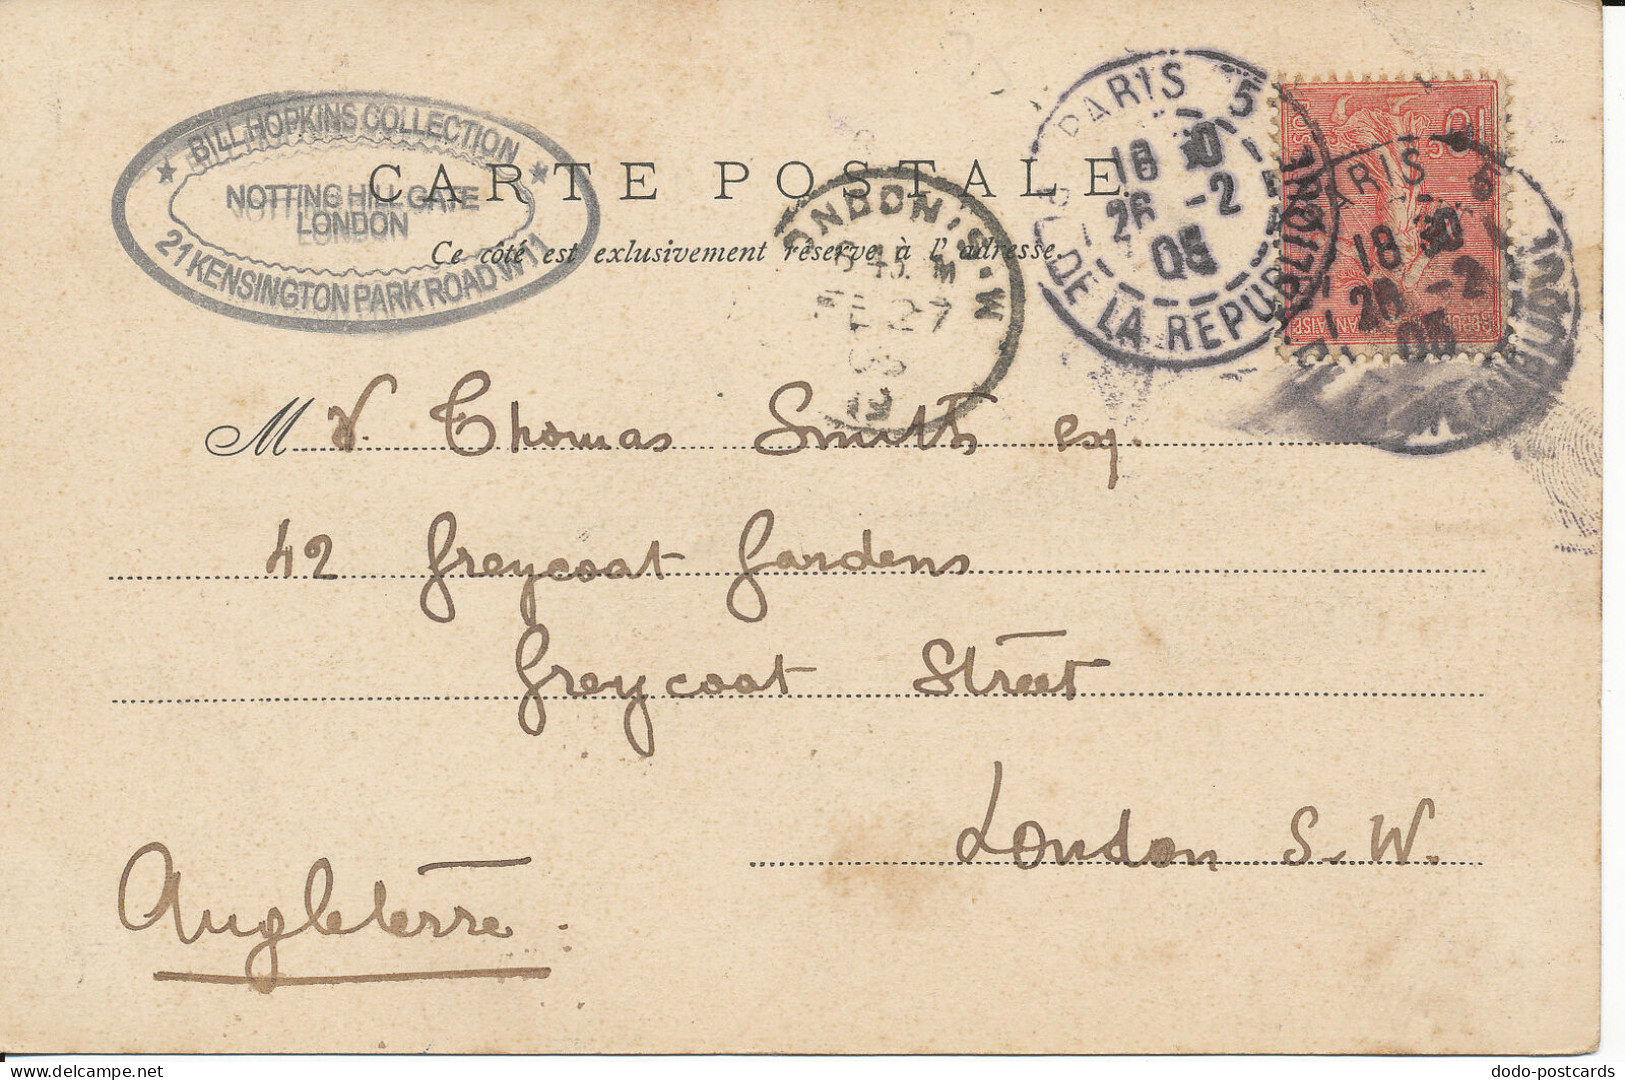 BILL HOPKINS COLLECTION
NOTTING HILL GATE
LONDON
21 KENSINGTON PARK ROAD W11
CARTE POSTALE
Ce côté est exlusivement réservé à l' adresse.
PARIS 5
18 30
26 -2
05
DE LA REPUBLIQUE
PARIS 5
18 30
26 -2
05
LONDON S.W.
27
10
REPUBLIQUE FRANÇAISE
M r. Thomas Smith esq.
42 Greycoat Gardens
Greycoat Street
London S.W.
Angleterre.
dodo-postcards